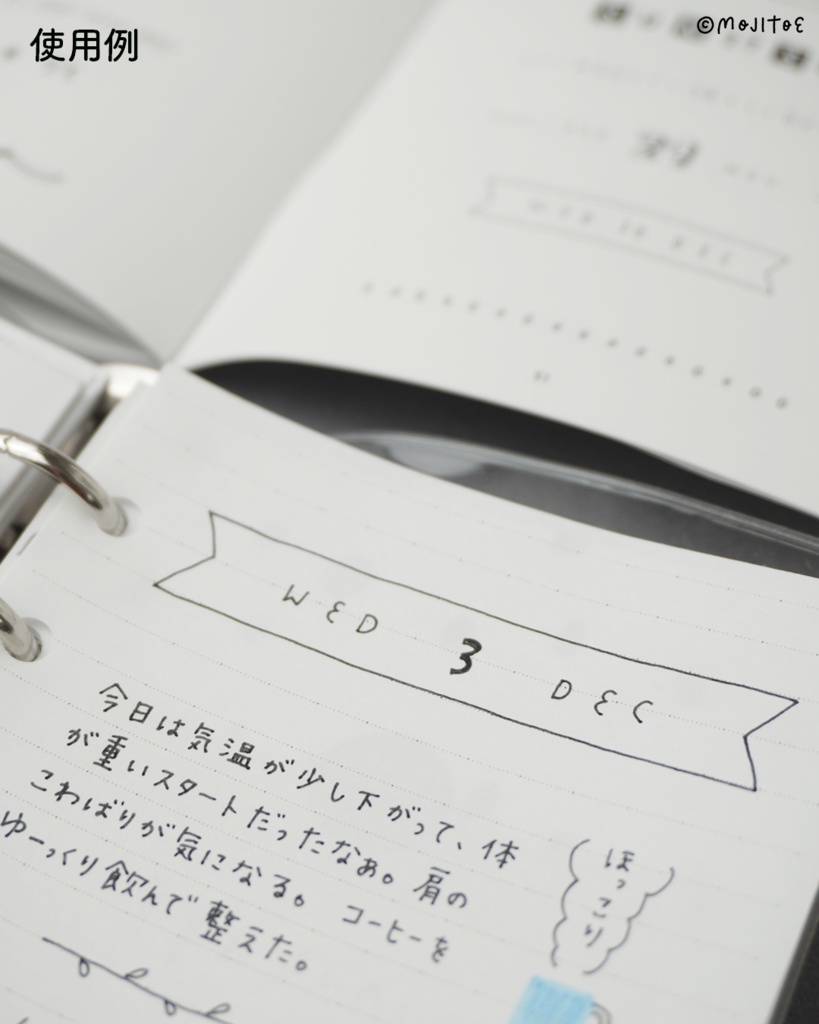 使用例
©MOJITOE
WED 3 DEC
今日は気温が少し下がって、体
が重いスタートだったなぁ。肩の
こわばりが気になる。コーヒーを
ゆーっくり飲んで整えた。
ほっこり